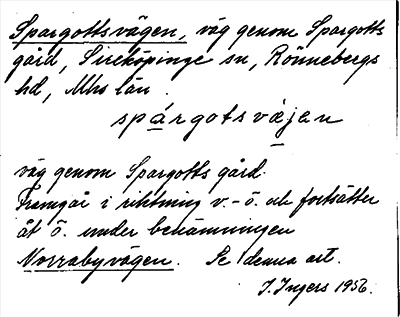 Spargottsvägen, väg genom Spargotts
gård, Sireköpinge sn, Rönnebergs
hd, Mhs län.
spárgotsväjen
väg genom Spargotts gård.
Framgår i riktning v.-ö. och fortsätter
åt ö. under benämningen
Norrabyvägen. Se denna art.
I. Ingers 1956.